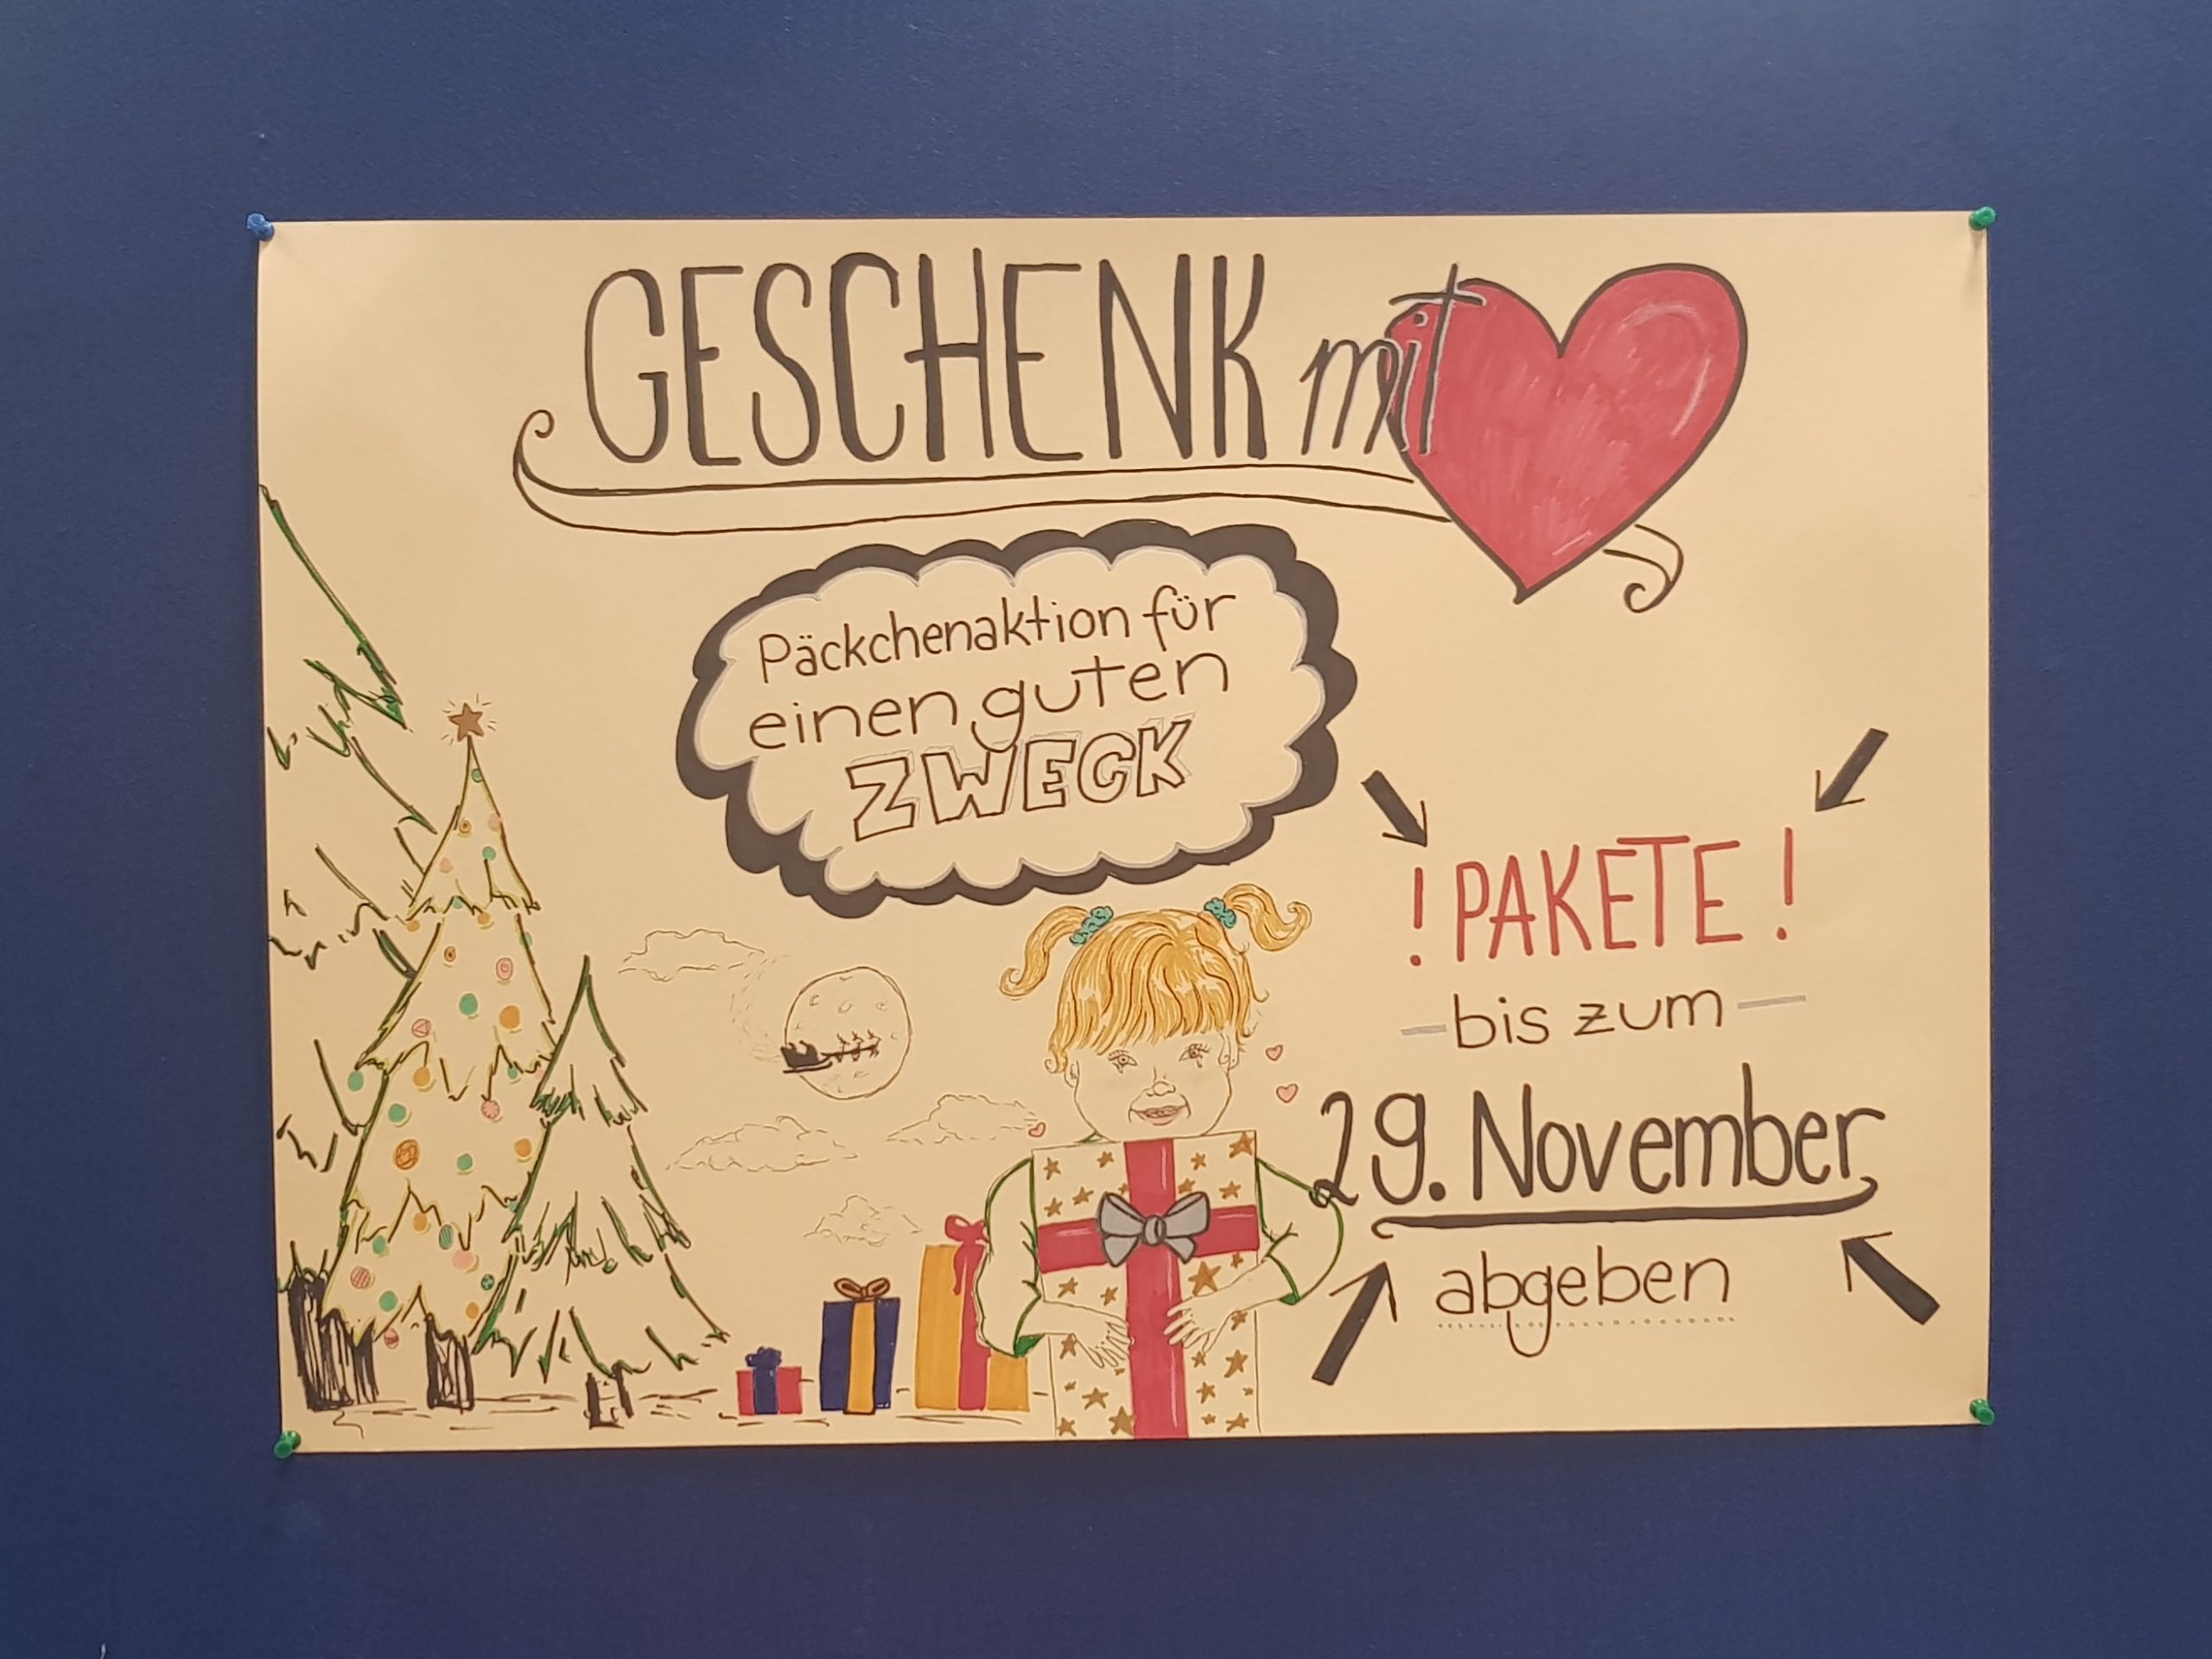 GESCHENK mit
Päckchenaktion für
einen guten
ZWECK
! PAKETE !
- bis zum -
29. November
abgeben